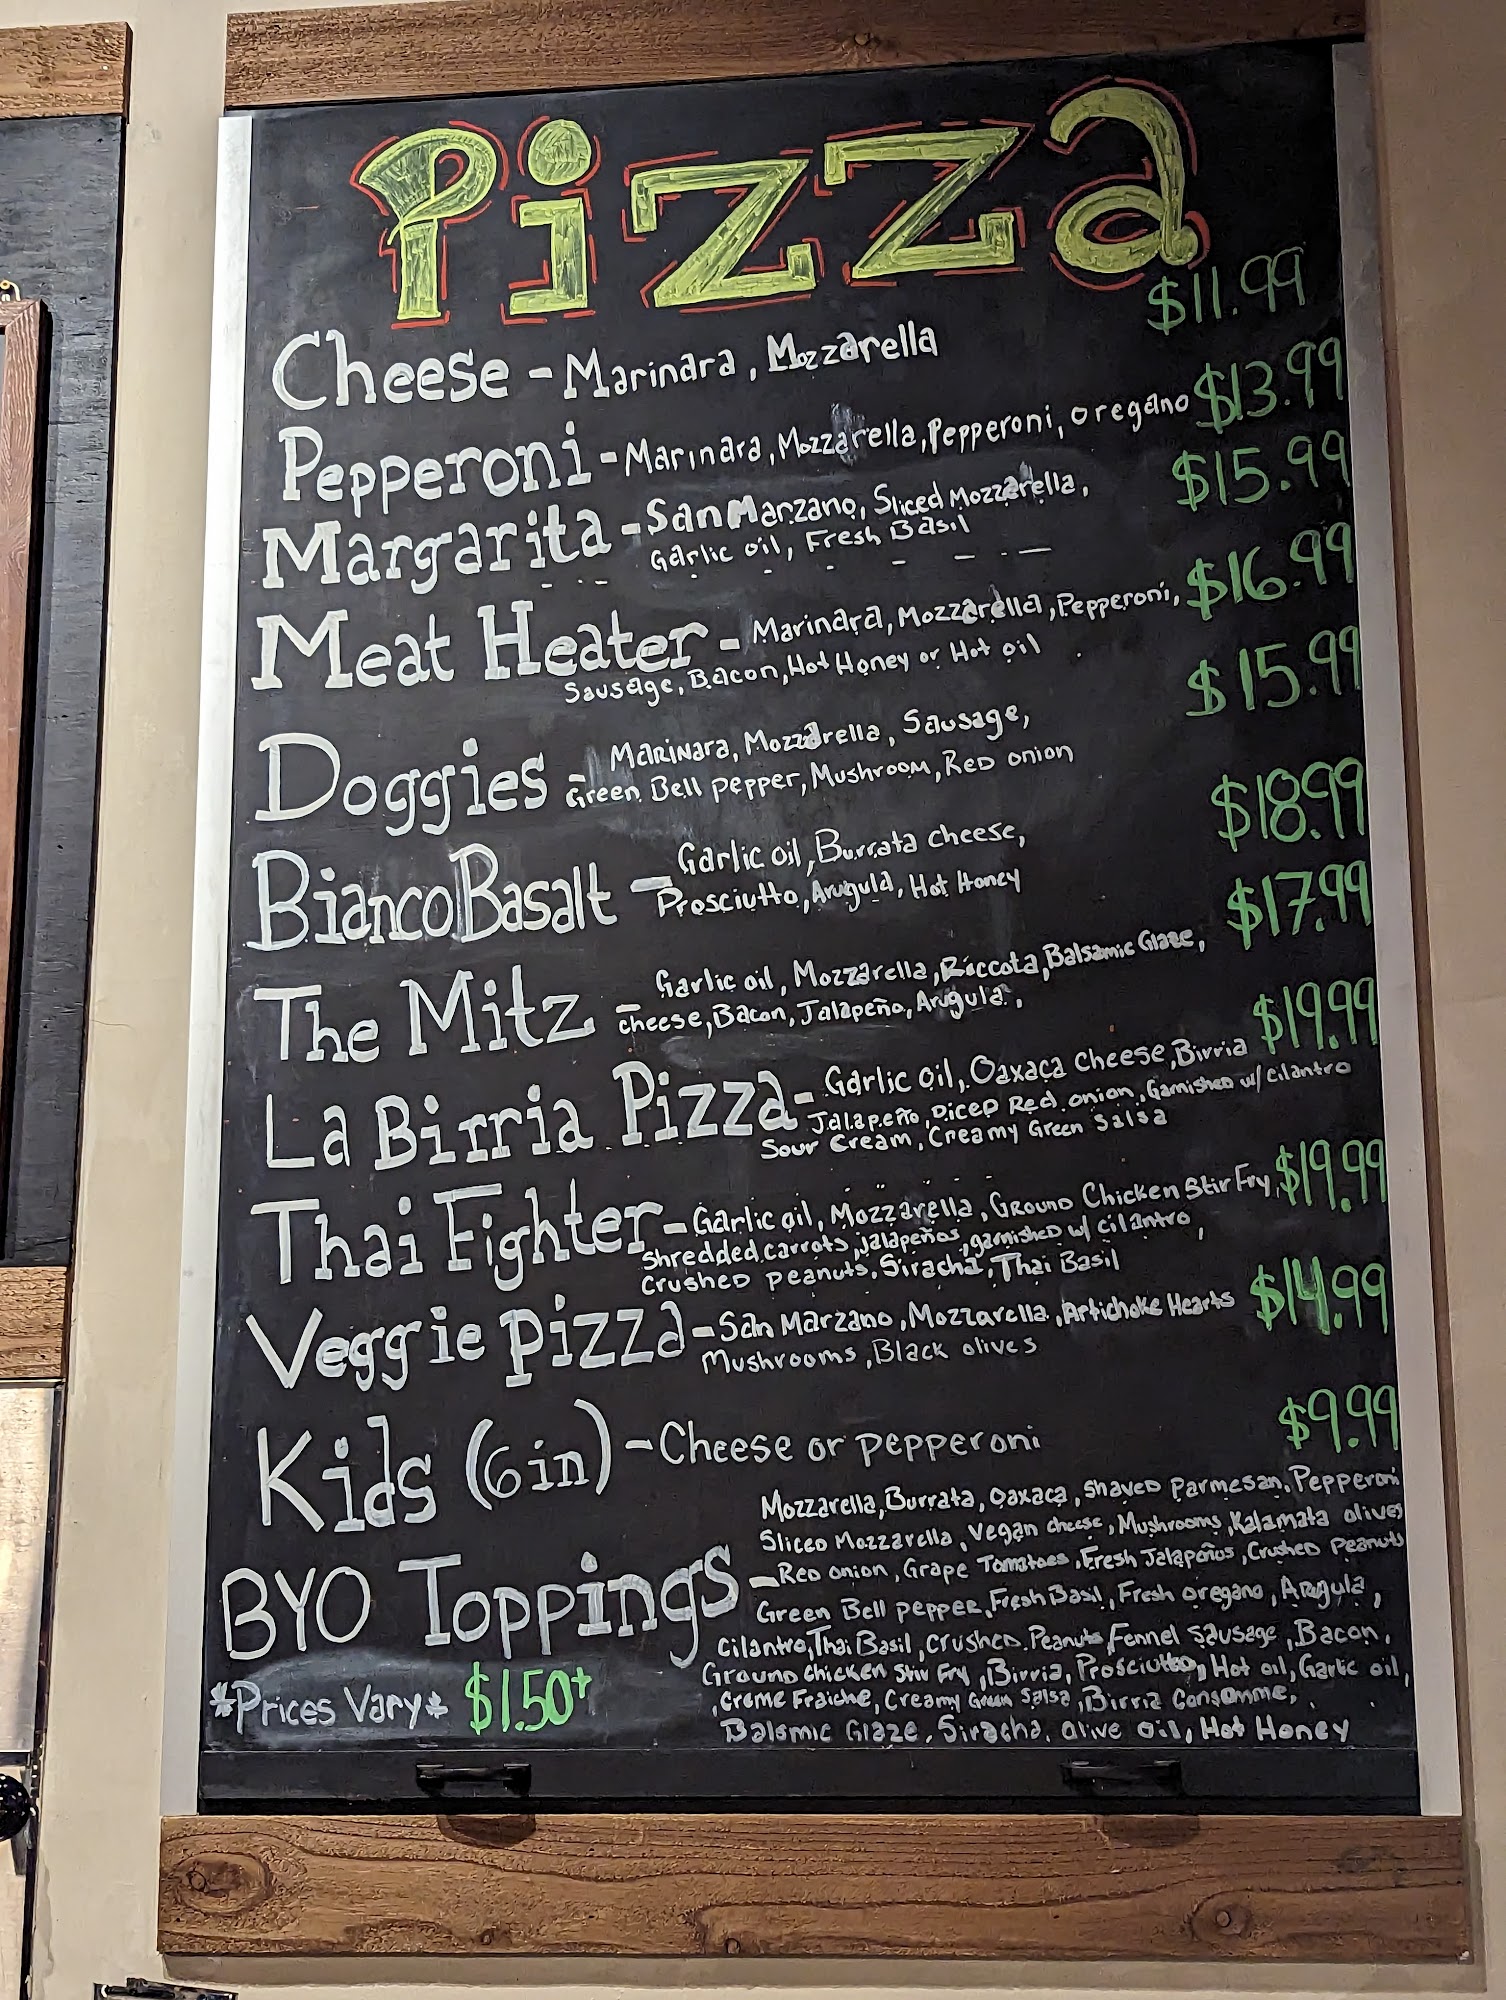 Pizza
Cheese - Marinara, Mozzarella $11.99
Pepperoni - Marinara, Mozzarella, Pepperoni, oregano $13.99
Margarita - San Marzano, Sliced Mozzarella, $15.99
Garlic oil, Fresh Basil
Meat Heater - Marinara, Mozzarella, Pepperoni, $16.99
Sausage, Bacon, Hot Honey or Hot oil
Doggies - Marinara, Mozzarella, Sausage, $15.99
Green Bell pepper, Mushroom, Red onion
Bianco Basalt - Garlic oil, Burrata cheese, $18.99
Prosciutto, Arugula, Hot Honey
The Mitz - Garlic oil, Mozzarella, Riccota, Balsamic Glaze, $17.99
cheese, Bacon, Jalapeño, Arugula.
La Birria Pizza - Garlic oil, Oaxaca cheese, Birria $19.99
Jalapeño, Diced Red onion, Garnished w/ cilantro
Sour Cream, Creamy Green Salsa
Thai Fighter - Garlic oil, Mozzarella, Ground Chicken Stir Fry, $19.99
shredded carrots, jalapeños, garnished w/ cilantro,
Crushed peanuts, Siracha, Thai Basil
Veggie pizza - San Marzano, Mozzarella, Artichoke Hearts $14.99
Mushrooms, Black olives
Kids (6in) - Cheese or pepperoni $9.99
Mozzarella, Burrata, Oaxaca, shaved parmesan, Pepperoni
Sliced Mozzarella, Vegan cheese, Mushrooms, Kalamata olives
BYO Toppings - Red onion, Grape Tomatoes, Fresh Jalapeños, Crushed peanuts
Green Bell pepper, Fresh Basil, Fresh oregano, Arugula,
cilantro, Thai Basil, crushed Peanuts, Fennel Sausage, Bacon,
Ground chicken Stir Fry, Birria, Prosciutto, Hot oil, Garlic oil,
*Prices Vary* $1.50+
, Creme Fraiche, Creamy Green Salsa, Birria Consomme,
Balsmic Glaze, Siracha, olive oil, Hot Honey